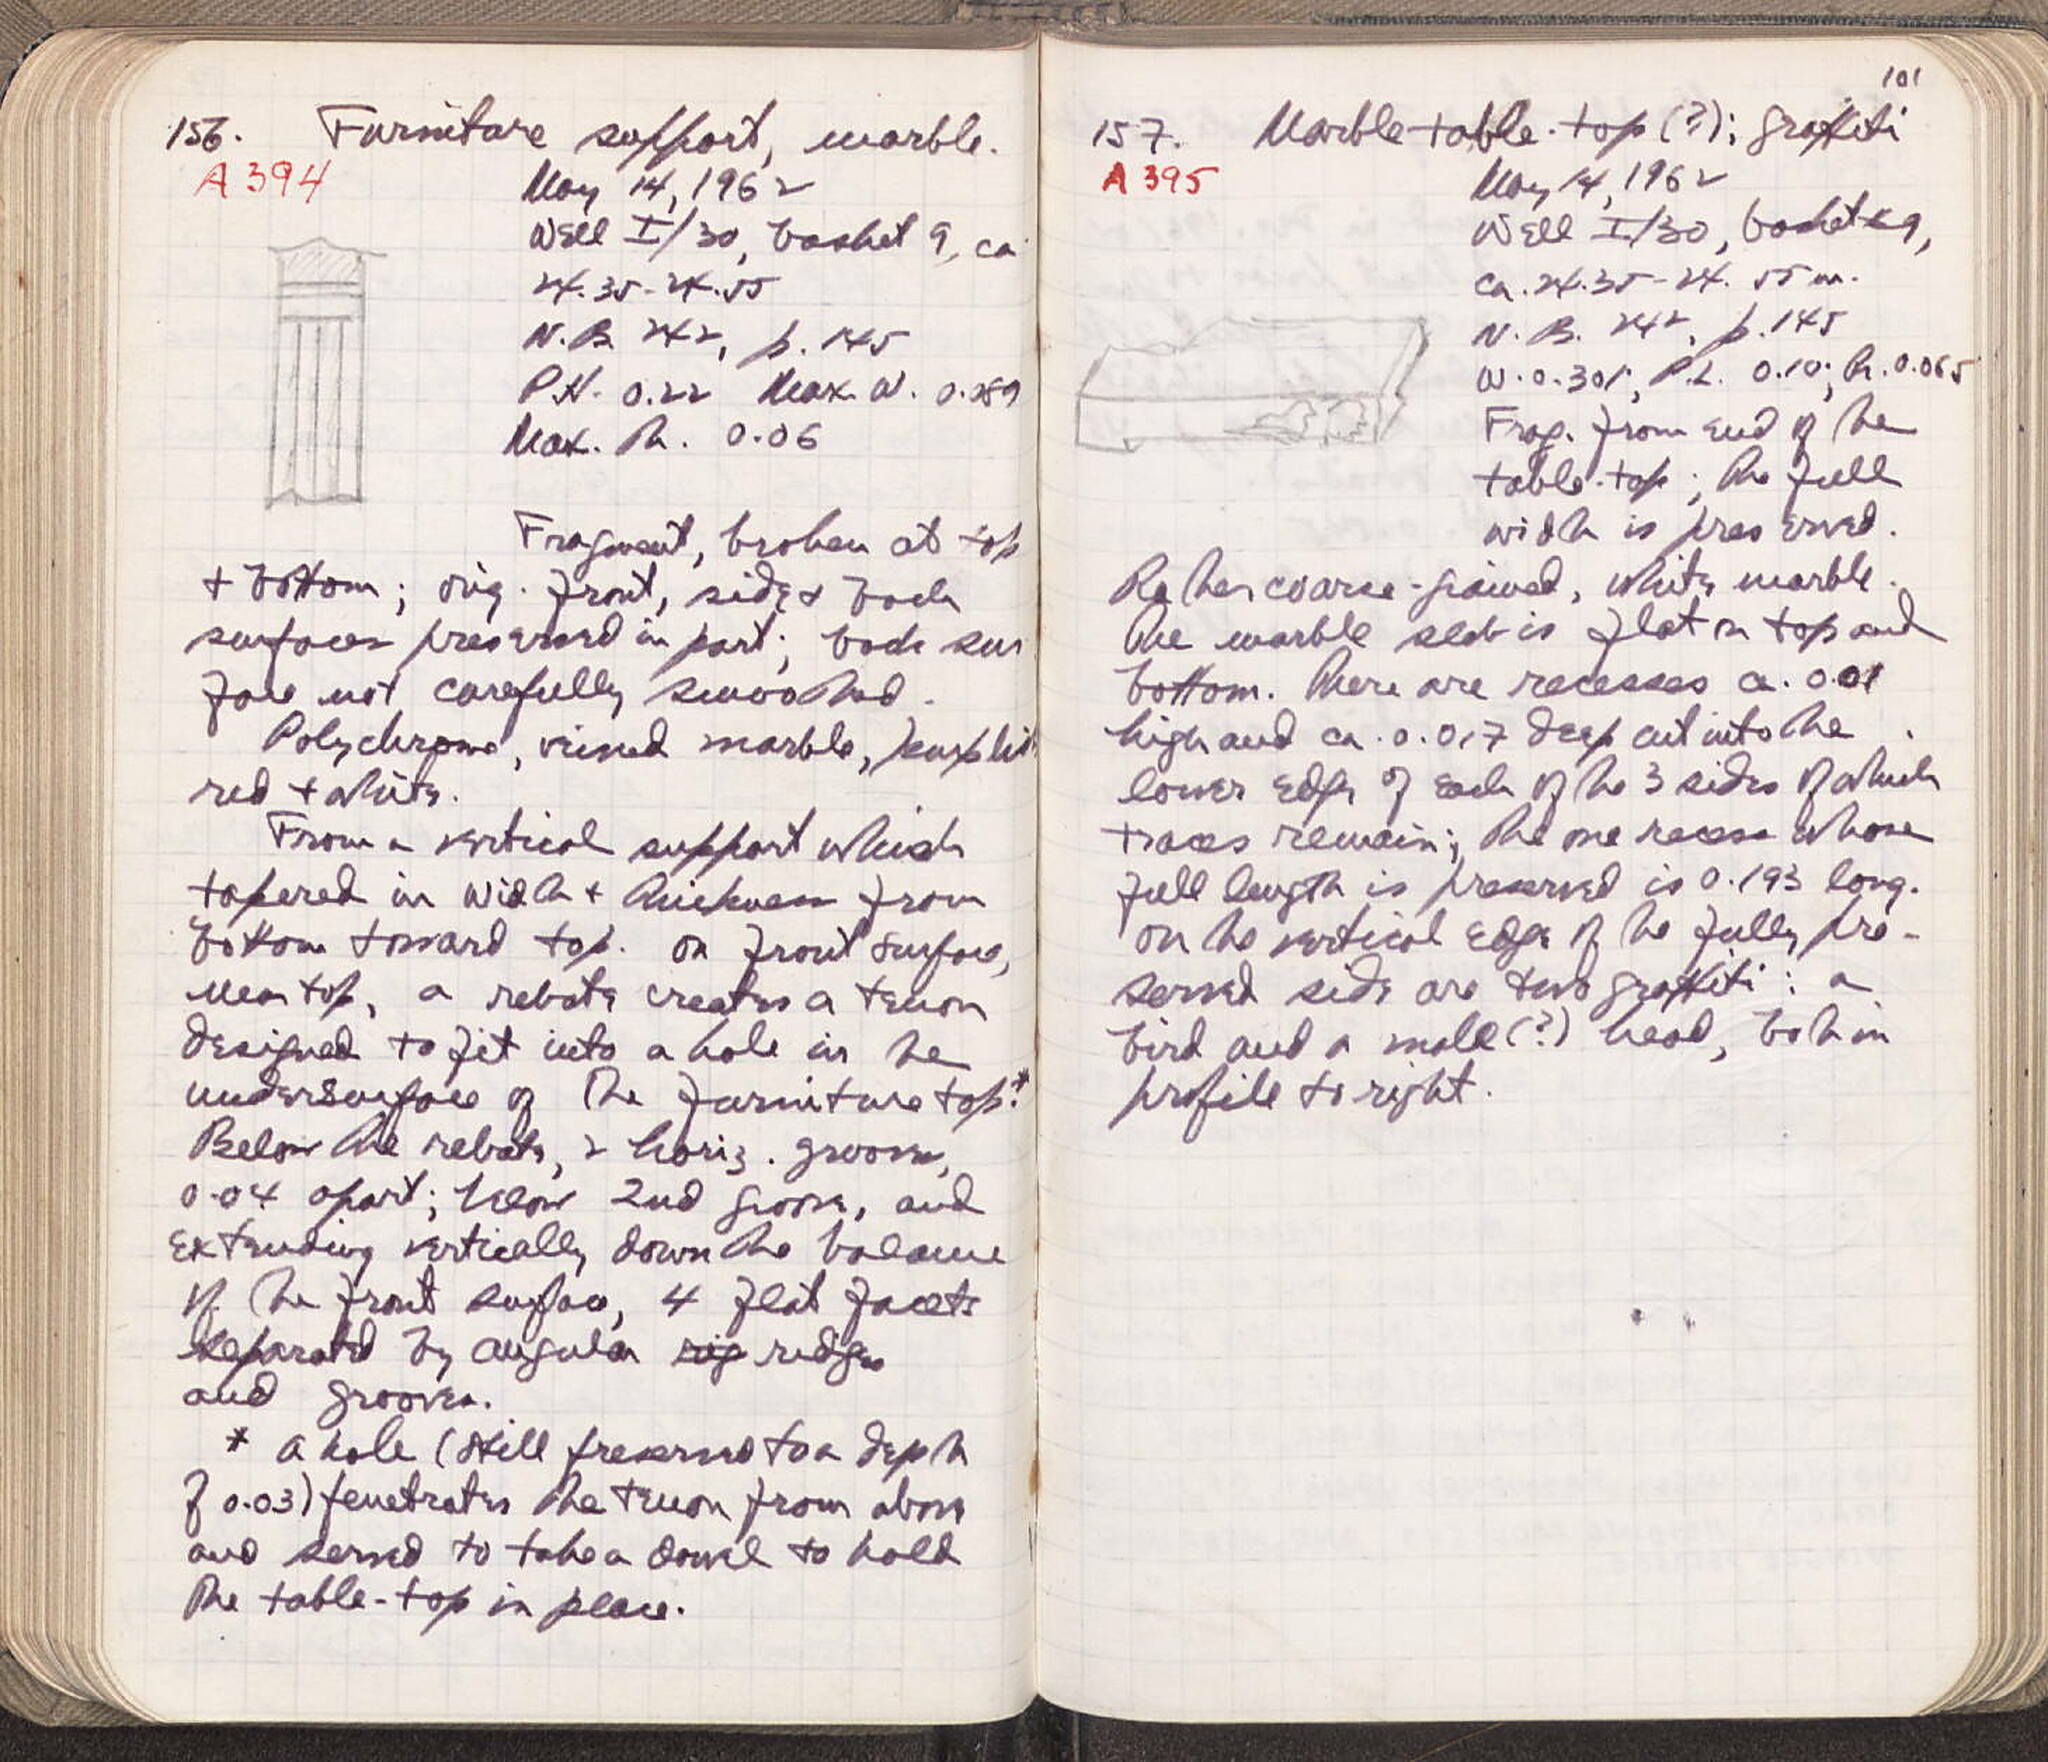 156. Furniture support, marble.
A 394
May 14, 1962
Well I/30, basket 9, ca
24.35-24.55
N.B. 242, p. 145
P.H. 0.22 Max. W. 0.089
Max. Th. 0.06
Fragment, broken at top
+ bottom; orig. front, side + back
surfaces preserved in part; back sur
face not carefully smoothed.
Polychrome, veined marble, purplish
red + white.
From a vertical support which
tapered in width + thickness from
bottom toward top. On front surface,
near top, a rebate creates a tenon
designed to fit into a hole in the
undersurface of the furniture top.*
Below the rebate, 2 horiz. grooves,
0.04 apart; below 2nd groove, and
extending vertically down the balance
of the front surface, 4 flat facets
separated by angular rig ridges
and grooves.
* A hole (still preserved to a depth
of 0.03) penetrates the tenon from above
and served to take a dowel to hold
the table-top in place.
101
157. Marble table-top (?); graffiti
A 395
May 14, 1962
Well I/30, basket 9,
ca. 24.35-24.55 m.
N.B. 242, p. 145
W. 0.301; P.L. 0.10; Th. 0.065
Frag. from end of the
table-top; the full
width is preserved.
Rather coarse-grained, white marble.
The marble slab is flat on top and
bottom. There are recesses ca. 0.01
high and ca. 0.017 deep cut into the
lower edge of each of the 3 sides of which
traces remain; the one recess whose
full length is preserved is 0.193 long.
On the vertical edge of the fully pre-
served side are two graffiti: a
bird and a male (?) head, both in
profile to right.